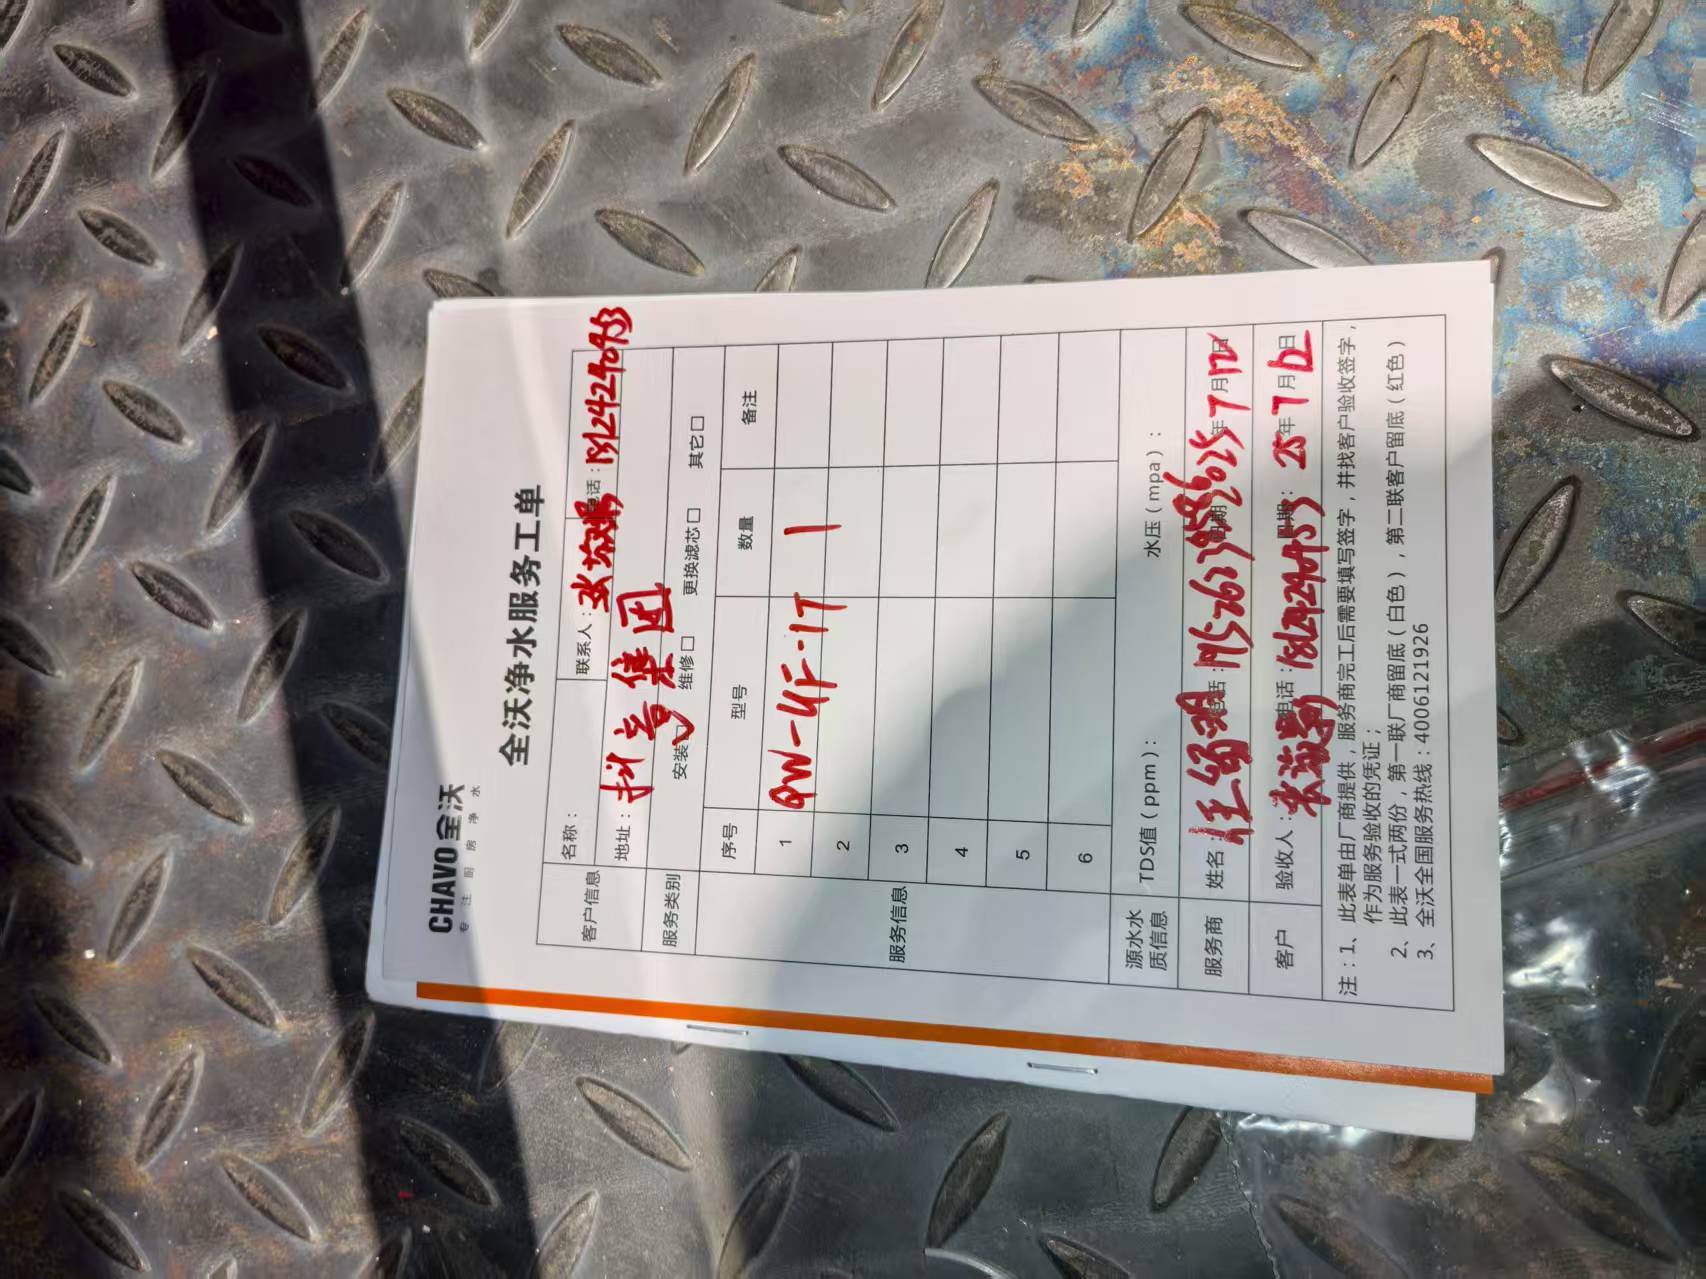 CHAVO 全沃
专注厨房净水
全沃净水服务工单
客户信息 名称： 联系人： 电话：
地址：抖音集团
服务类别 安装□ 维修□ 更换滤芯□ 其它□
服务信息 序号 型号 数量 备注
1 QW-UF-1T 1
2
3
4
5
6
源水水质信息 TDS值（ppm）： 水压（mpa）：
服务商 姓名： 电话： 日期：2025年7月12日
客户 验收人： 电话： 日期：25年7月12日
注：1、此表单由厂商提供，服务商完工后需要填写签字，并找客户验收签字，
作为服务验收的凭证；
2、此表一式两份，第一联厂商留底（白色），第二联客户留底（红色）
3、全沃全国服务热线：4006121926